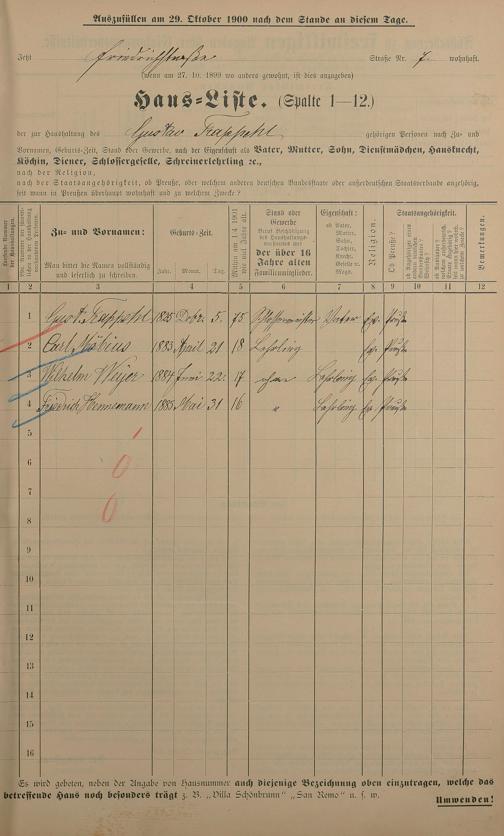 Auszufüllen am 29. Oktober 1900 nach dem Stande an diesem Tage.
Jetzt Friedrichstraße Straße Nr. 7. wohnhaft.
(wenn am 27. 10. 1899 wo anders gewohnt, ist dies anzugeben)
Haus-Liste. (Spalte 1—12.)
der zur Haushaltung des Gustav Trappehl gehörigen Personen nach Zu- und
Vornamen, Geburts-Zeit, Stand oder Gewerbe, nach der Eigenschaft als Vater, Mutter, Sohn, Dienstmädchen, Hausknecht,
Köchin, Diener, Schlossergeselle, Schreinerlehrling &c.,
nach der Religion,
nach der Staatsangehörigkeit, ob Preuße, oder welchem anderen deutschen Bundesstaate oder außerdeutschen Staatsverbande angehörig,
seit wann in Preußen überhaupt wohnhaft und zu welchem Zwecke?
Laufende Nummer der Haushaltungen.
Zu- und Vornamen:
Man bittet die Namen vollständig und leserlich zu schreiben.
Geburts-Zeit.
Jahr. Monat. Tag.
Mithin am 1.4 1901 wie viel Jahre alt.
Stand oder Gewerbe
der über 16 Jahre alten Familienmitglieder.
Eigenschaft:
ob Vater, Mutter, Sohn, Tochter, Knecht, Geselle u. s. w. Magd.
Religion.
Staatsangehörigkeit.
Ob Preuße?
Bemerkungen.
1 2 3 4 5 6 7 8 9 10 11 12
1 Gust. Trappehl 1825 Dezbr. 5. 75 Schlossermeister Vater Ev. Preuße
2 Carl Möbius 1883 April 21 18 Lehrling Ev. Preuße
3 Wilhelm Weyer 1884 Juni 22. 17 ohne Lehrling Ev. Preuße
4 Friedrich Hennemann 1885 Mai 31 16 " Lehrling Ev. Preuße
5
6
7
8
9
10
11
12
13
14
15
16
Es wird gebeten, neben der Angabe von Hausnummer auch diejenige Bezeichnung oben einzutragen, welche das
betreffende Haus noch besonders trägt z. B. „Villa Schönbrunn" „San Remo" u. s. w.
Umwenden!